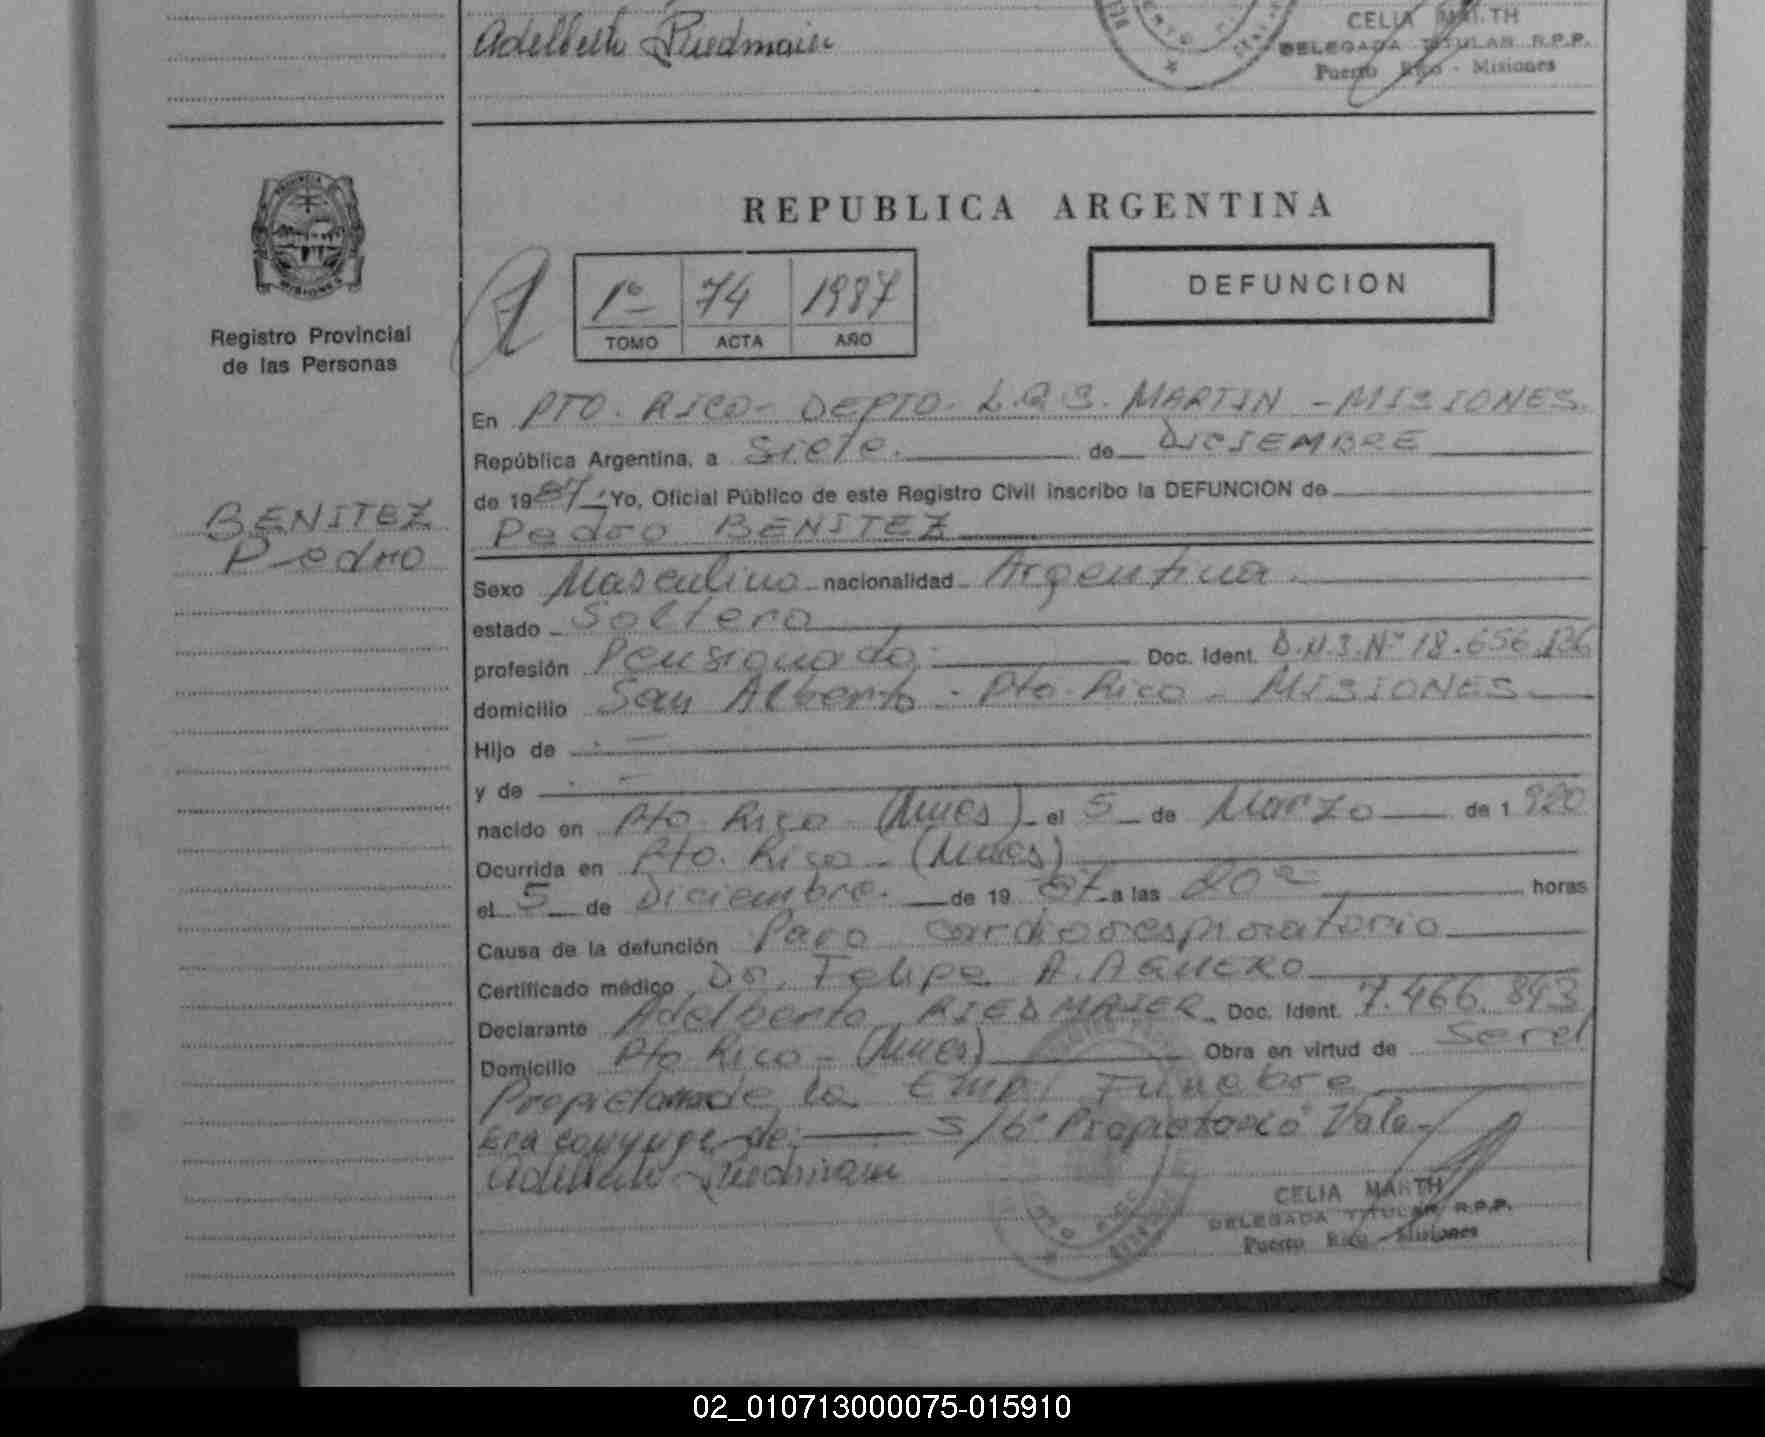 Adelberto Riedmaier
CELIA MARTH
DELEGADA TITULAR R.P.P.
Puerto Rico - Misiones
REPUBLICA ARGENTINA
1º 74 1987
TOMO ACTA AÑO
DEFUNCION
Registro Provincial
de las Personas
BENITEZ
Pedro
En PTO. RICO- DEPTO. L.G.S. MARTIN - MISIONES.
República Argentina, a Siete. de DICIEMBRE
de 1987. Yo, Oficial Público de este Registro Civil inscribo la DEFUNCION de
Pedro BENITEZ
Sexo Masculino nacionalidad Argentina.
estado Soltero
profesión Pensionado. Doc. Ident. D.N.I.Nº 18.656.136
domicilio San Alberto - Pto. Rico - MISIONES
Hijo de . —
y de . —
nacido en Pto. Rico - (Mnes) el 5 de Marzo de 1 920
Ocurrida en Pto. Rico - (Mnes)
el 5 de Diciembre. de 19 87 a las 20 horas
Causa de la defunción Paro cardiorespiratorio
Certificado médico Dr. Felipe A. AGUERO
Declarante Adelberto RIEDMAIER Doc. Ident. 7.466.843
Domicilio Pto Rico - (Mnes) Obra en virtud de Ser el
Propietario de la Emp. Funebre
Era conyuge de: S/bº Propietario Vale
Adelberto Riedmaier
CELIA MARTH
DELEGADA TITULAR R.P.P.
Puerto Rico - Misiones
02_010713000075-015910